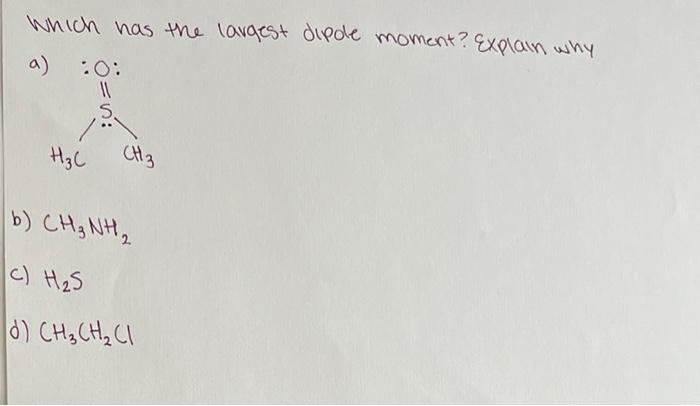 Which has the largest dipole moment? Explain why
a) :O:
||
S
H3C CH3
b) CH3NH2
c) H2S
d) CH3CH2Cl